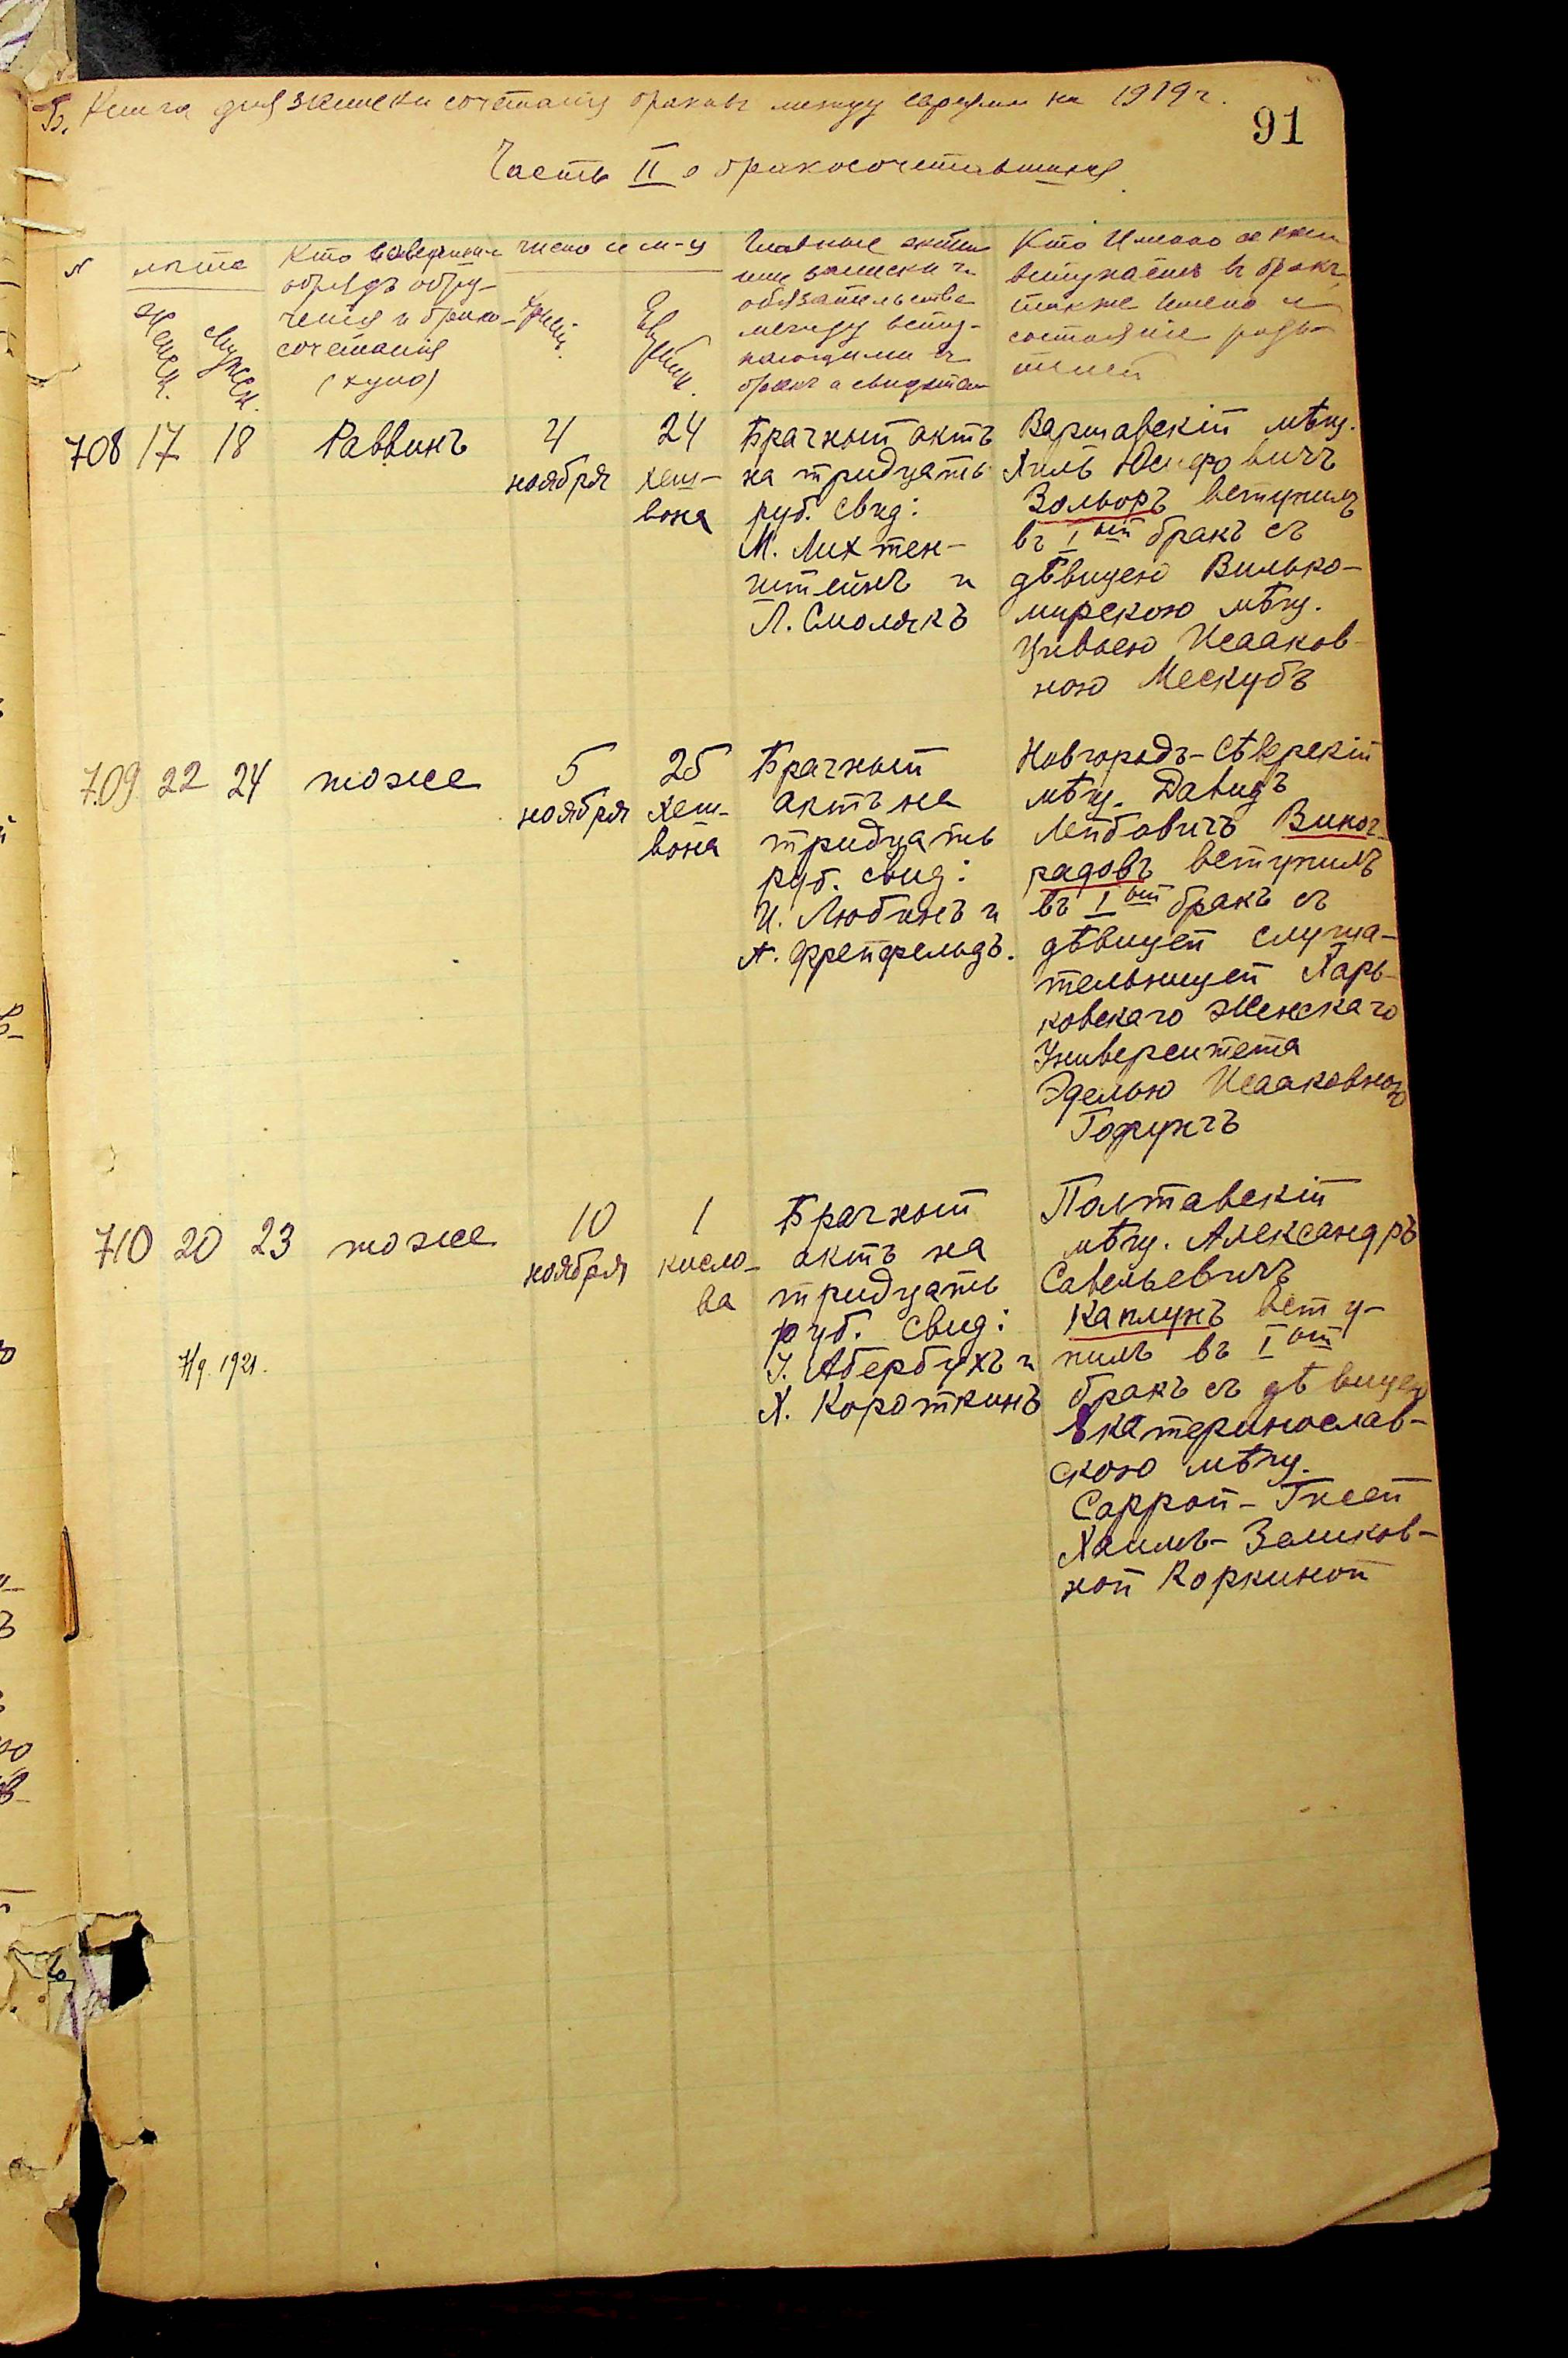 Б. Книга для записки сочетанiя браковъ между евреями на 1919 г.
91
Часть II о бракосочетавшихся
№
лѣта
женск.
мужск.
Кто совершилъ
обрядъ обру-
ченiя и брако-
сочетанiя
(хупо)
число и м-ц
Еврейск.
Главные акты
или записи и
обязательства
между всту-
пающими въ
бракъ и свидѣтели
Кто Именно съ кѣмъ
вступаетъ въ бракъ,
также имена и
состоянiе роди-
телей
708 17 18 Раввинъ
4
ноября
24
хеш-
вона
Брачный актъ
на тридцать
руб. Свид:
М. Лихтен-
штейнъ и
Л. Смолякъ
Варшавскiй мѣщ.
Хиль Юсифовичъ
Вольфъ вступилъ
въ I ый бракъ съ
дѣвицею Вилько-
мирскою мѣщ.
Цивьею Исааков-
ною Мескубъ
709 22 24 тоже
5
ноября
25
хеш-
вона
Брачный
актъ на
тридцать
руб. свид:
И. Любинъ и
А. Фрейфельдъ.
Новгородъ-Сѣверскiй
мѣщ. Давидъ
Лейбовичъ Виног-
радовъ вступилъ
въ I ый бракъ съ
дѣвицей слуша-
тельницей Харь-
ковскаго Женскаго
Университета
Эделью Исааковною
Гофунгъ
710 20 23 тоже
10
ноября
1
кисло-
ва
Брачный
актъ на
тридцать
руб. Свид:
I. Абербухъ и
Х. Короткинъ
Полтавскiй
мѣщ. Александръ
Савельевичъ
Каплунъ всту-
пилъ въ I ый
бракъ съ дѣвицею
Екатеринослав-
скою мѣщ.
Саррой-Гнеей
Хаимъ-Залмков-
ной Коркиной
1921.